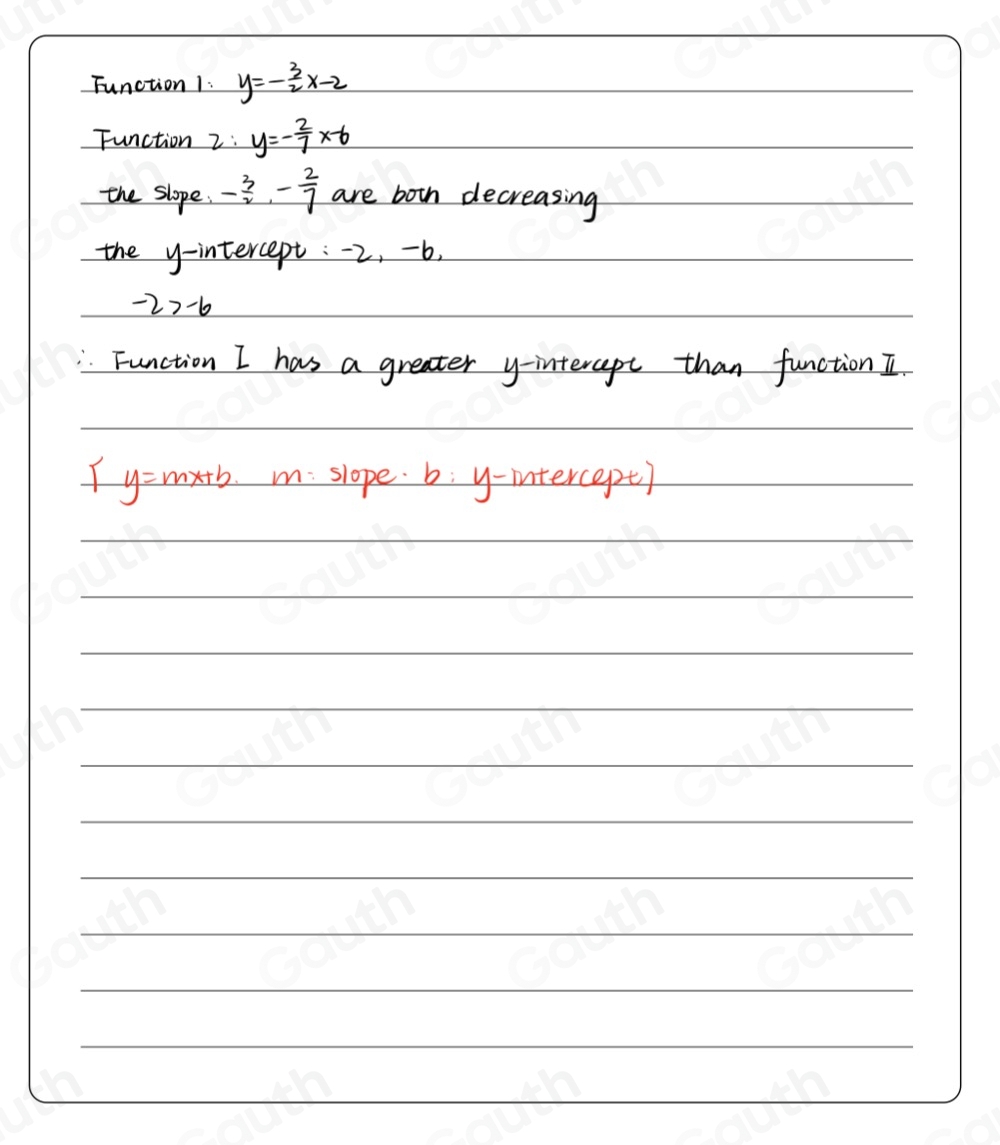 Function 1: y=-3/2x-2
Function 2: y=-2/7x-6
the slope: -3/2, -2/7 are both decreasing
the y-intercept: -2, -6,
-2>-6
∴ Function I has a greater y-intercept than function II.
[y=mx+b. m: slope. b: y-intercept]
Gauth